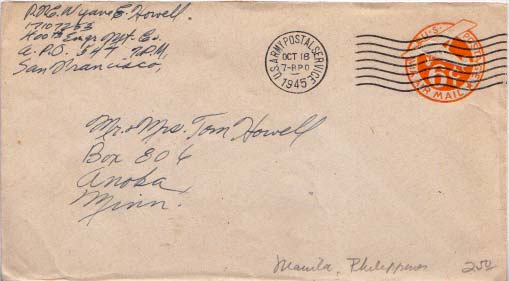 Wyane E. Howell.
17107253
400th Engr. Mt. Co.
A.P.O. 547 % P.M.
San Francisco,
U.S. ARMY POSTAL SERVICE
OCT 18
7-8 PM
1945
U.S.
6¢
AIR MAIL
Mr. & Mrs. Tom Howell
Box 806
Anoka
Minn.
Manila, Philippines
2.50